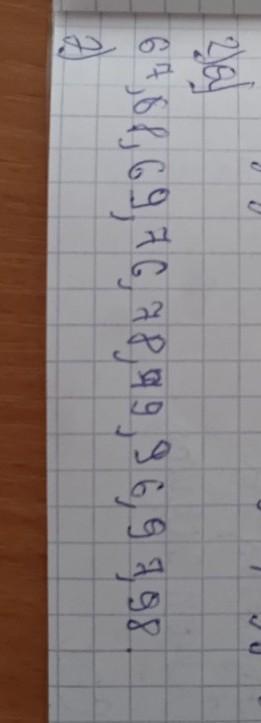 2)б)
67, 68, 69, 76, 78, 79, 96, 97, 98.
2)